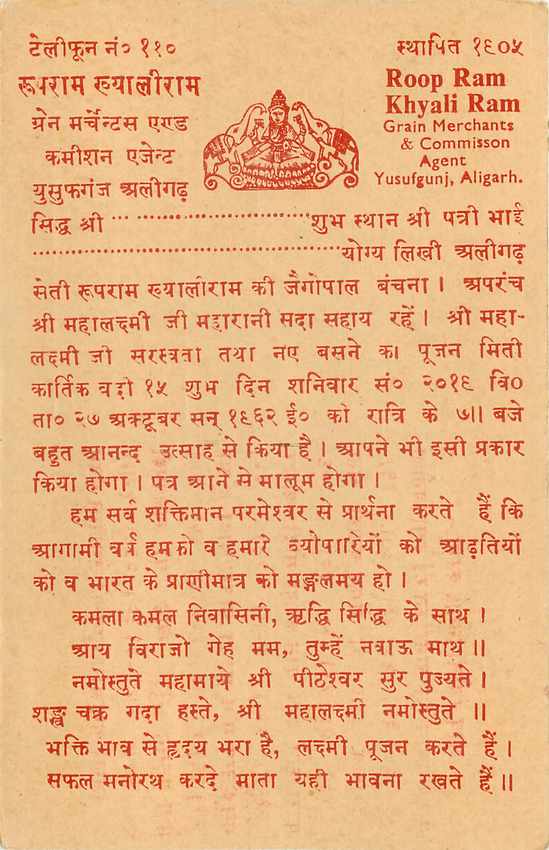 टेलीफून नं० ११०
स्थापित १९०५
रूपराम ख्यालीराम
ग्रेन मर्चेन्टस एण्ड
कमीशन एजेन्ट
युसुफगंज अलीगढ़
Roop Ram
Khyali Ram
Grain Merchants
& Commisson
Agent
Yusufgunj, Aligarh.
सिद्ध श्री ........................शुभ स्थान श्री पत्री भाई
........................योग्य लिखी अलीगढ़
सेती रूपराम ख्यालीराम की जैगोपाल बंचना । अपरंच
श्री महालक्ष्मी जी महारानी सदा सहाय रहें । श्री महा-
लक्ष्मी जी सरस्वती तथा नए बसने का पूजन मिती
कार्तिक वदी १५ शुभ दिन शनिवार सं० २०१९ वि०
ता० २७ अक्टूबर सन् १९६२ ई० को रात्रि के ७।। बजे
बहुत आनन्द उत्साह से किया है । आपने भी इसी प्रकार
किया होगा । पत्र आने से मालूम होगा ।
हम सर्व शक्तिमान परमेश्वर से प्रार्थना करते हैं कि
आगामी वर्ष हमको व हमारे व्योपारियों को आढ़तियों
को व भारत के प्राणीमात्र को मङ्गलमय हो ।
कमला कमल निवासिनी, ऋद्धि सिद्धि के साथ ।
आय विराजो गेह मम, तुम्हें नवाऊ माथ ।।
नमोस्तुते महामाये श्री पीठेश्वर सुर पुज्यते ।
शङ्ख चक्र गदा हस्ते, श्री महालक्ष्मी नमोस्तुते ।।
भक्ति भाव से हृदय भरा है, लक्ष्मी पूजन करते हैं ।
सफल मनोरथ करदे माता यही भावना रखते हैं ।।